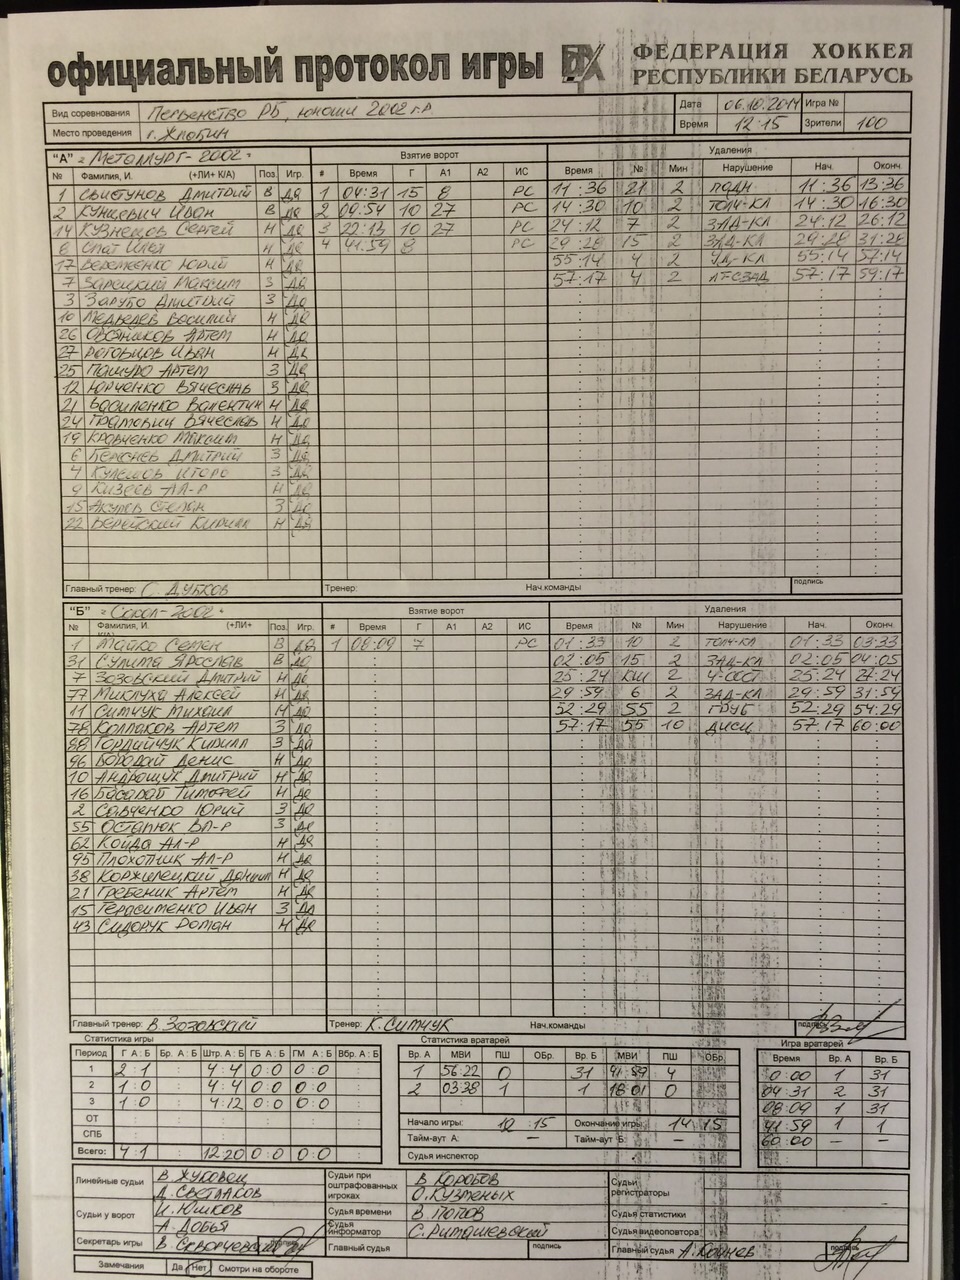 официальный протокол игры ФЕДЕРАЦИЯ ХОККЕЯ РЕСПУБЛИКИ БЕЛАРУСЬ
Вид соревнования Первенство РБ, юноши 2002 г.р Дата 06.10.2014 Игра №
Место проведения г. Жлобин Время 12:15 Зрители 100
"А" Металлург-2002 Взятие ворот Удаления
№ Фамилия, И. (+ЛИ+ К/А) Поз. Игр. # Время Г А1 А2 ИС Время № Мин Нарушение Нач. Оконч.
1 Свистунов Дмитрий В Да 1 04:31 15 8 РС 11:36 21 2 подн 11:36 13:36
2 Кункевич Иван В Да 2 09:54 10 27 РС 14:30 10 2 толч-кл 14:30 16:30
14 Кузнецов Сергей Н Да 3 22:13 10 27 РС 24:12 7 2 зад-кл 24:12 26:12
8 Илья Н Да 4 41:59 8 РС 29:28 15 2 зад-кл 29:28 31:28
17 Веременко Юрий Н Да 55:14 4 2 уд-кл 55:14 57:14
7 Зарецкий Максим З Да 57:17 4 2 57:17 59:17
3 Зарубо Дмитрий З Да
10 Медведев Василий Н Да
26 Овсяников Артем Н Да
27 Роговцов Иван Н Да
25 Пашуро Артем З Да
12 Юрченко Вячеслав З Да
21 Василенко Валентин Н Да
24 Вячеслав Н Да
19 Кравченко Максим Н Да
6 Берснев Дмитрий З Да
4 Кулешов Игорь З Да
9 Кизеев Ал-р Н Да
15 Акулов Степан З Да
22 Верейский Кирилл Н Да
Главный тренер: С. Дубков Тренер: Нач.команды подпись
"Б" Сокол-2002 Взятие ворот Удаления
№ Фамилия, И. (+ЛИ+ К/А) Поз. Игр. # Время Г А1 А2 ИС Время № Мин Нарушение Нач. Оконч.
1 Майко Семен В Да 1 08:09 7 РС 01:33 10 2 толч-кл 01:33 03:33
31 Сулима Ярослав В Да 02:05 15 2 зад-кл 02:05 04:05
7 Зозовский Дмитрий Н Да 25:24 КШ 2 ч-сост 25:24 27:24
77 Миклуха Алексей Н Да 29:59 6 2 зад-кл 29:59 31:59
11 Симчук Михаил Н Да 52:29 55 2 груб 52:29 54:29
78 Колпаков Артем З Да 57:17 55 10 дисц 57:17 60:00
88 Гордийчук Кирилл З Да
96 Бородай Денис Н Да
10 Андрощук Дмитрий Н Да
16 Басалай Тимофей Н Да
2 Савченко Юрий З Да
55 Остапюк Вл-р З Да
62 Койда Ал-р Н Да
95 Плохотник Ал-р Н Да
38 Коржилецкий Даниил Н Да
21 Гребеник Артем Н Да
15 Герасименко Иван З Да
43 Сидорук Роман Н Да
Главный тренер: В. Зозовский Тренер: К. Симчук Нач.команды подпись
Статистика игры Статистика вратарей Игра вратарей
Период Г А : Б Бр. А : Б Штр. А : Б ГБ А : Б ГМ А : Б Вбр. А : Б Вр. А МВИ ПШ ОБр. Вр. Б МВИ ПШ ОБр. Время Вр. А Вр. Б
1 2:1 4:4 0:0 0:0 1 56:22 0 31 41:59 4 0:00 1 31
2 1:0 4:4 0:0 0:0 2 03:38 1 1 18:01 0 04:31 2 31
3 1:0 4:12 0:0 0:0 08:09 1 31
ОТ Начало игры: 12 15 Окончание игры 14 15 41:59 1 1
СПБ Тайм-аут А: — Тайм-аут Б: — 60:00 — —
Всего: 4:1 12:20 0:0 0:0 Судья инспектор
Линейные судьи В. Жуковец Судьи при оштрафованных игроках В. Коротов Судьи регистраторы
Д. Светлаков О. Кузменых
Судьи у ворот И. Юшков Судья времени В. Попов Судьи статистики
А. Добья Судья информатор С. Ритошевский Судья видеоповтора
Секретарь игры В. Скворчевский подпись Главный судья подпись Главный судья подпись
Замечания Да Нет Смотри на обороте